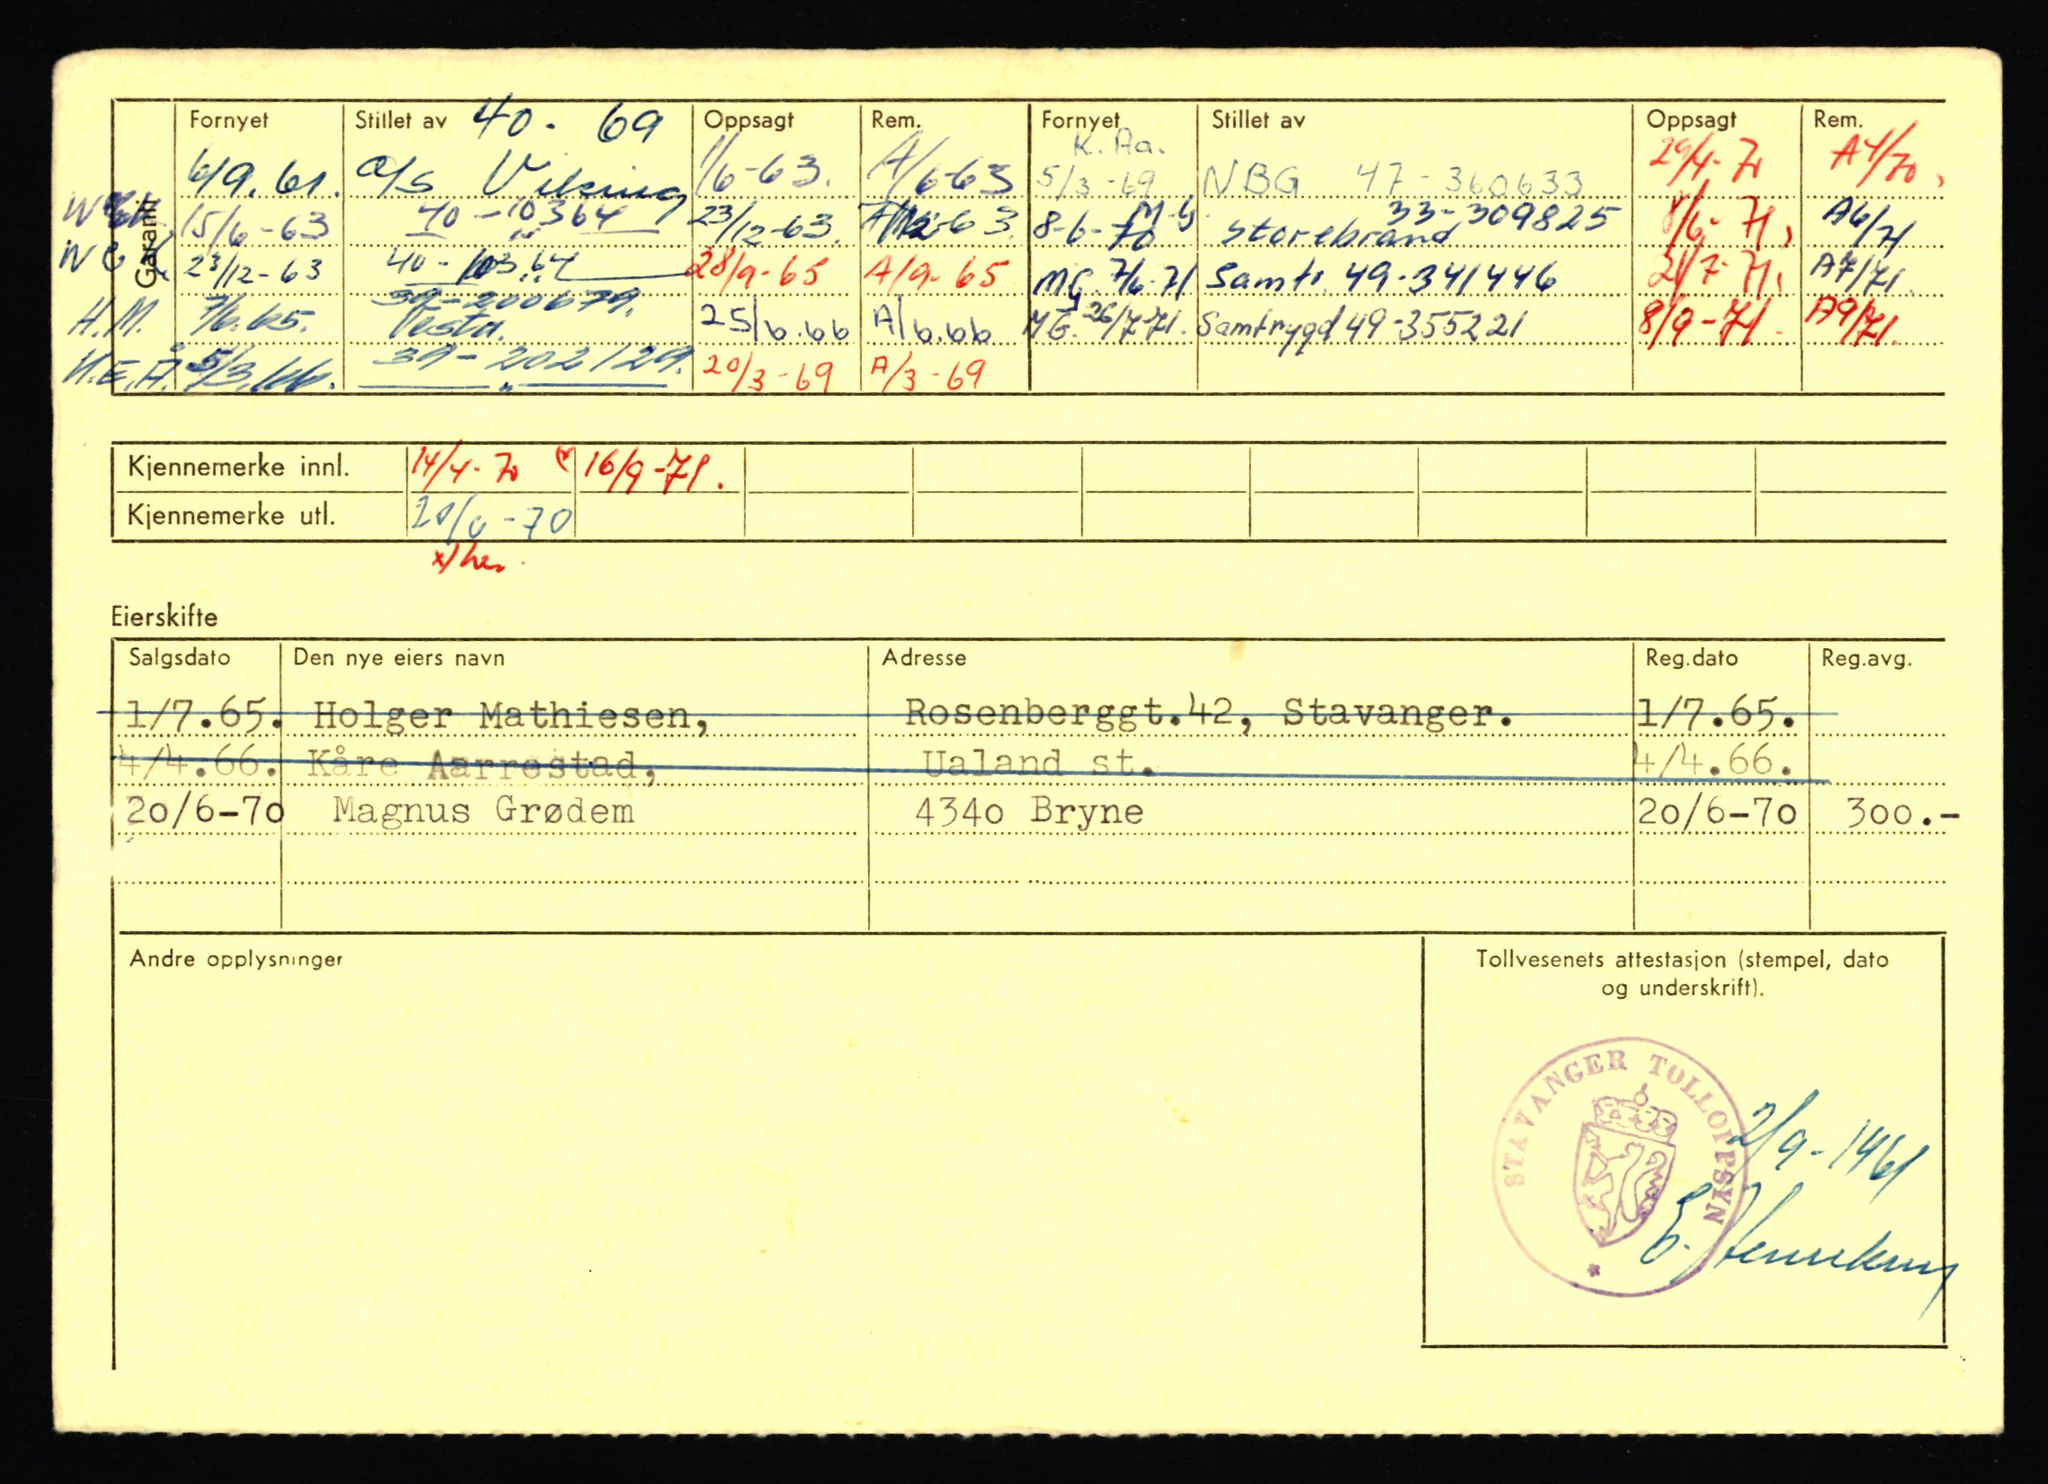 Garanti
Fornyet Stillet av 40. 69 Oppsagt Rem. Fornyet Stillet av Oppsagt Rem.
6/9.61. a/s Viking 1/6-63. A/6-63 K.Aa. 5/3-69 NBG 47-360633 29/4-70 A4/70,
15/6-63 40-10364 23/12-63. 8-6-70 M.G. Storebrand 33-309825 8/6-71, A6/71
23/12-63 40-10364 28/9-65 A/9-65 MG. 7/6-71 Samtr. 49-341446 21/7-71, A7/71.
H.M. 7/6.65. Vesta. 39-200679. 25/6.66 A/6.66 MG. 26/7-71. Samtrygd 49-355221 8/9-71. A9/71.
39-202129. 20/3-69 A/3-69
Kjennemerke innl. 14/4-70 16/9-71.
Kjennemerke utl. 20/6-70
Eierskifte
Salgsdato Den nye eiers navn Adresse Reg.dato Reg.avg.
1/7.65. Holger Mathiesen, Rosenberggt.42, Stavanger. 1/7.65.
4/4.66. Kåre Aarrestad, Ualand st. 4/4.66.
20/6-70 Magnus Grødem 4340 Bryne 20/6-70 300.-
Andre opplysninger
Tollvesenets attestasjon (stempel, dato
og underskrift).
STAVANGER TOLLOPPSYN
2/9-1961